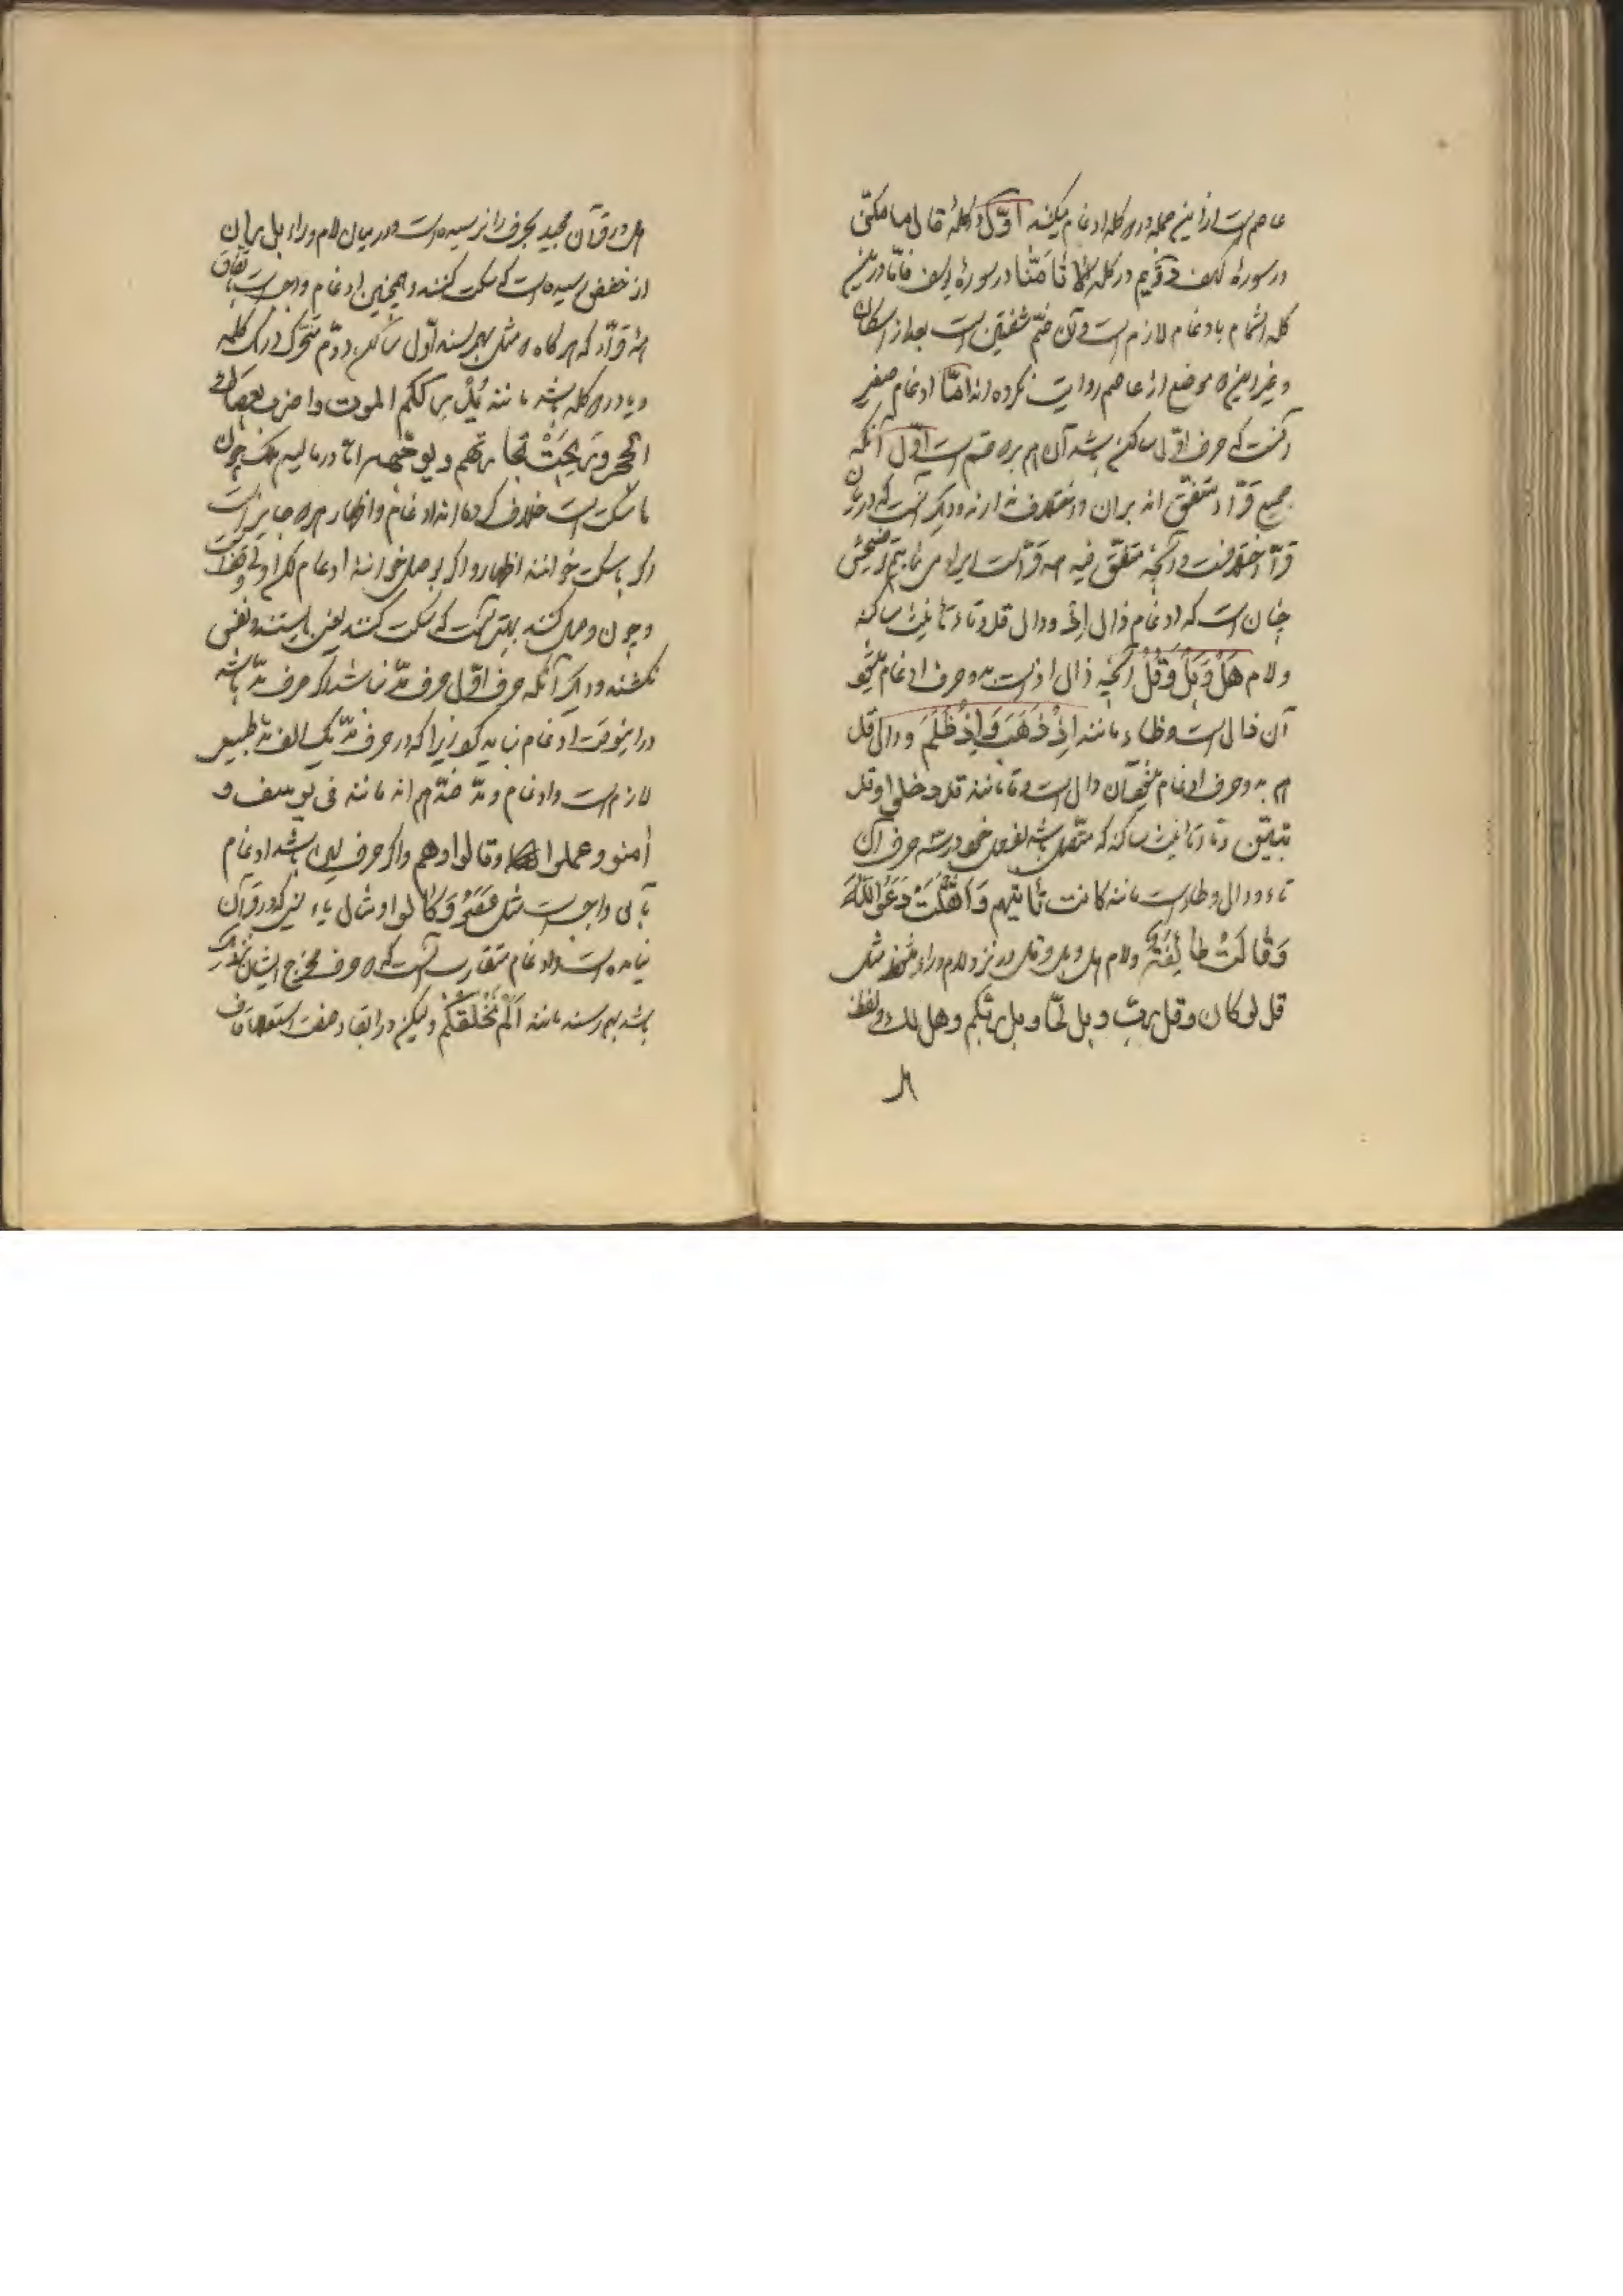 عاصم است ازین جمله در دو کلمه ادغام میکند اوّل در کلمهٔ قال ما مکنّی
در سورهٔ کهف دوّیم در کلمه لا تأمَنّا در سورهٔ یوسف فامّا درین
کلمه اشمام با ادغام لازم است و آن ضمّ شفتین است بعد از اسکان
و غیر ازین دو موضع از عاصم روایت نکرده اند امّا ادغام صغیر
آنست که حرف اوّل ساکن باشد آن هم بر دو قسم است اوّل آنکه
جمیع قرّاء متفق اند بران و اختلاف ندارند و دیگر آنست که درمیان
قرّاء اختلافست و آنچه متفق فیه همه قرّاء است ایراد می نماییم توضیحش
چنان است که ادغام ذال إذ و دال قد و تاء تأنیث ساکنه
و لام هَلْ وَبَلْ وَقُلْ آنچه ذال اذ است بدو حرف ادغام میشود
آن ذال است و ظاء مانند اِذْ ذَهَبَ وَاِذْ ظَلَمَ و دال قد
هم بدو حرف ادغام میشود آن دال است و تا مانند قد دخلوا و قد
تبیّن و تاء تأنیث ساکنه که متصل باشد بفعل خود در سه حرف آن
تاء و دال و طاء است مانند کانت تأتیهم وَاَثْقَلَتْ دَعَوَاللّٰهَ
وَقَالَتْ طَائِفَةٌ و لام هل و بل و قل در نزد لام و راء میشود مثل
قل لو کان و قل ربّ و بل لمّا و بل ربّکم و هل لك و لفظ
هل
هل در قرآن مجید بحرف را نرسیده است و در میان لام و راء بل ران
از حفص رسیده است که سکت کنند و همچنین ادغام واجب است باتفاق
ائمه قرّاء که هر گاه دو مثل بهم رسند اوّل ساکن و دوّم متحرّک در یک کلمه
و یا در دو کلمه باشد مانند یُدْرِككم الموت واضرب بعصاك
الحجر وَرَبِحَتْ تجارتهم و یوجّهه امّا در مالیه هلك چون
ها سکت است خلاف کرده اند ادغام و اظهار هر دو جایز است
اگر با سکت خوانند اظهار و اگر بوصل خوانند ادغام لکن اولی وقف است
و چون وصل کنند بهتر آنست که سکت کنند یعنی بایستند و نفس
نکشند و دیگر آنکه حرف اوّل حرف مدّ نباشد اگر حرف مدّ باشد
در اینوقت ادغام نباید کرد زیرا که در حرف مدّ یک الف مدّ طبیعی
لازم است و ادغام و مدّ ضدّ هم اند مانند فی یوسف و
آمنو وعملوا وقالوا وهم و اگر حرف لین باشد ادغام
باقی واجب است مثل عَفَوْ وَقَالوا و مثال یاء لین که در قرآن
نیامده است و ادغام متقارب آنست که دو حرف مخرج ایشان نزدیک
باشد بهم رسند مانند اَلَمْ نَخْلُقْكُمْ و لیکن در ابقاء صفت استعلاء قاف